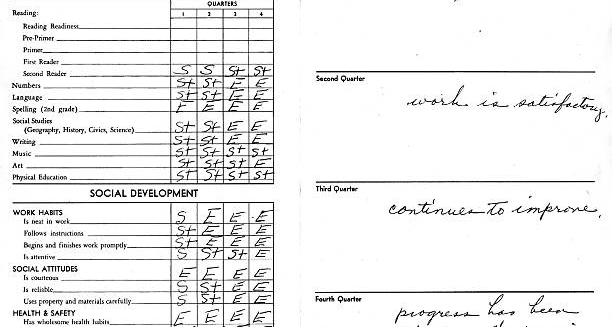 QUARTERS
Reading: 1 2 3 4
Reading Readiness
Pre-Primer
Primer
First Reader
Second Reader S S S+ S+
Numbers S+ S+ E E
Language S+ S+ E E
Spelling (2nd grade) E E E
Social Studies
(Geography, History, Civics, Science) S+ S+ E E
Writing S+ S+ E E
Music S+ S+ S+ S+
Art S+ S+ S+ E
Physical Education S+ S+ S+ S+
SOCIAL DEVELOPMENT
WORK HABITS
Is neat in work S E E E
Follows instructions S+ E E E
Begins and finishes work promptly S+ E E E
Is attentive S S+ S+ E
SOCIAL ATTITUDES
Is courteous E E E E
Is reliable S S+ E E
Uses property and materials carefully S S+ E E
HEALTH & SAFETY
Has wholesome health habits E E E E
Second Quarter
work is satisfactory.
Third Quarter
continues to improve.
Fourth Quarter
progress has been